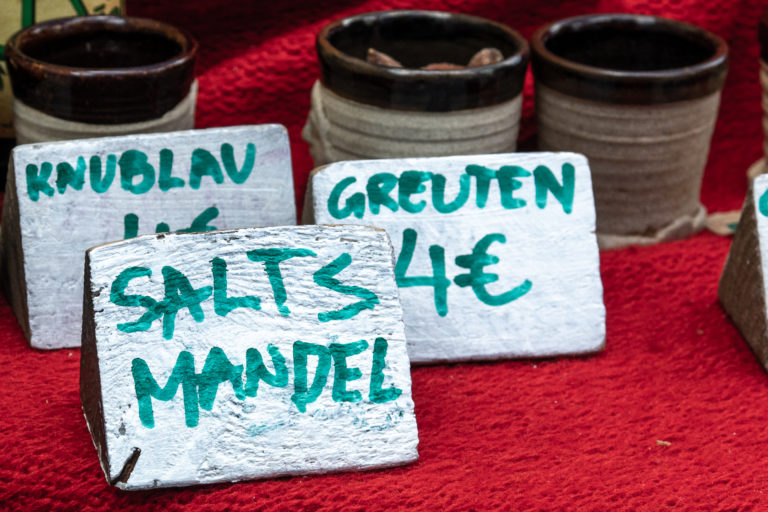 KNUBLAU
4€
GREUTEN
4€
SALTS
MANDEL